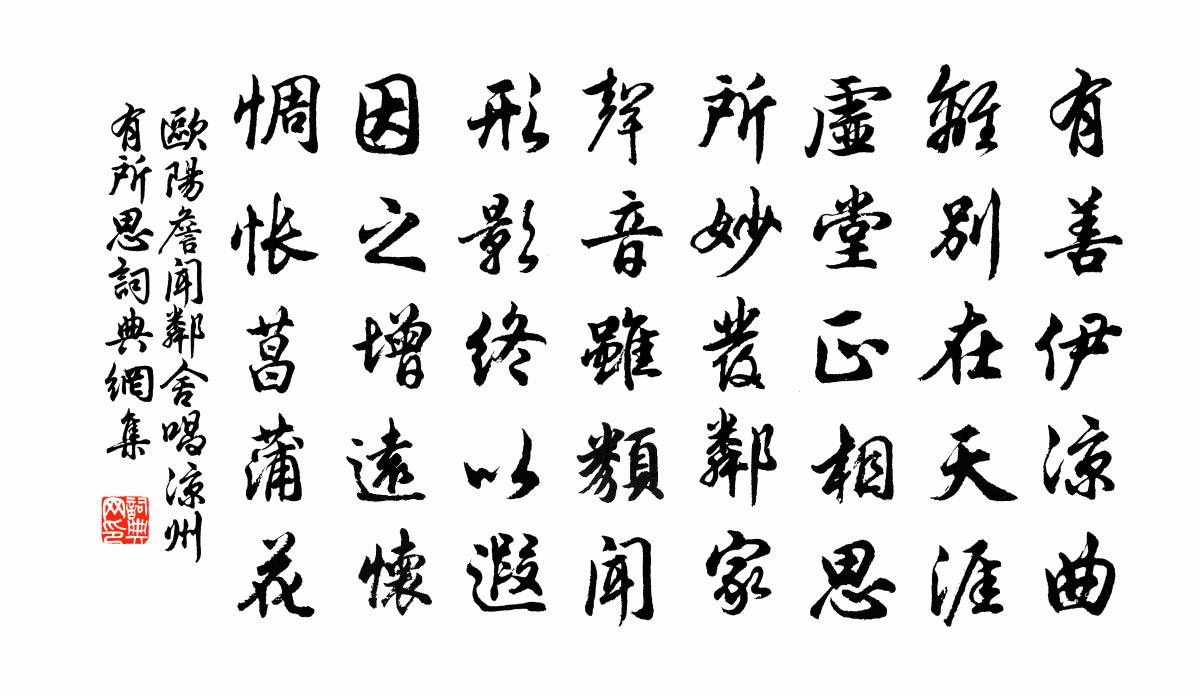 有善伊涼曲
離別在天涯
虛堂正相思
所妙發鄰家
聲音雖類聞
形影終以遐
因之增遠懷
惆悵菖蒲花
歐陽詹聞鄰舍唱涼州
有所思詞典網集
詞典
网印